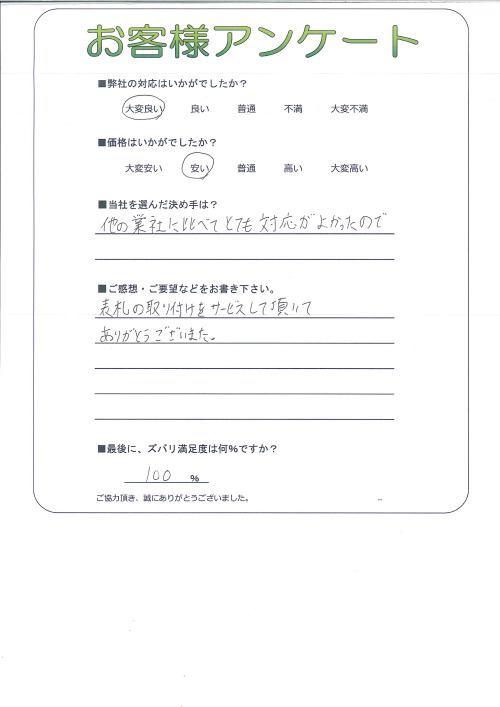 お客様アンケート
■弊社の対応はいかがでしたか？
大変良い 良い 普通 不満 大変不満
■価格はいかがでしたか？
大変安い 安い 普通 高い 大変高い
■当社を選んだ決め手は？
他の業社に比べてとても対応がよかったので
■ご感想・ご要望などをお書き下さい。
表札の取り付けをサービスして頂いて
ありがとうございました。
■最後に、ズバリ満足度は何％ですか？
100 ％
ご協力頂き、誠にありがとうございました。